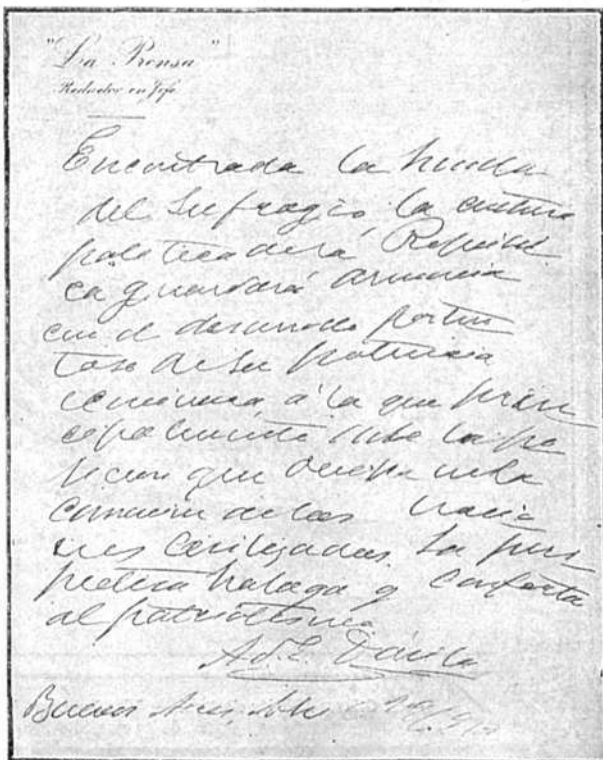 "La Prensa"
Redactor en Jefe
Encontrada la huella
del sufragio, la cultura
politica de la Repúbli
ca guardará armonia
con el desarrollo porten
toso de su potencia
economica, á la que prin
cipalmente debe la po
sicion que ocupa en el
de las nacio
nes civilizadas. La pers
pectiva halaga y conforta
al patriotismo
Ad. E. Dávila
Buenos Aires,